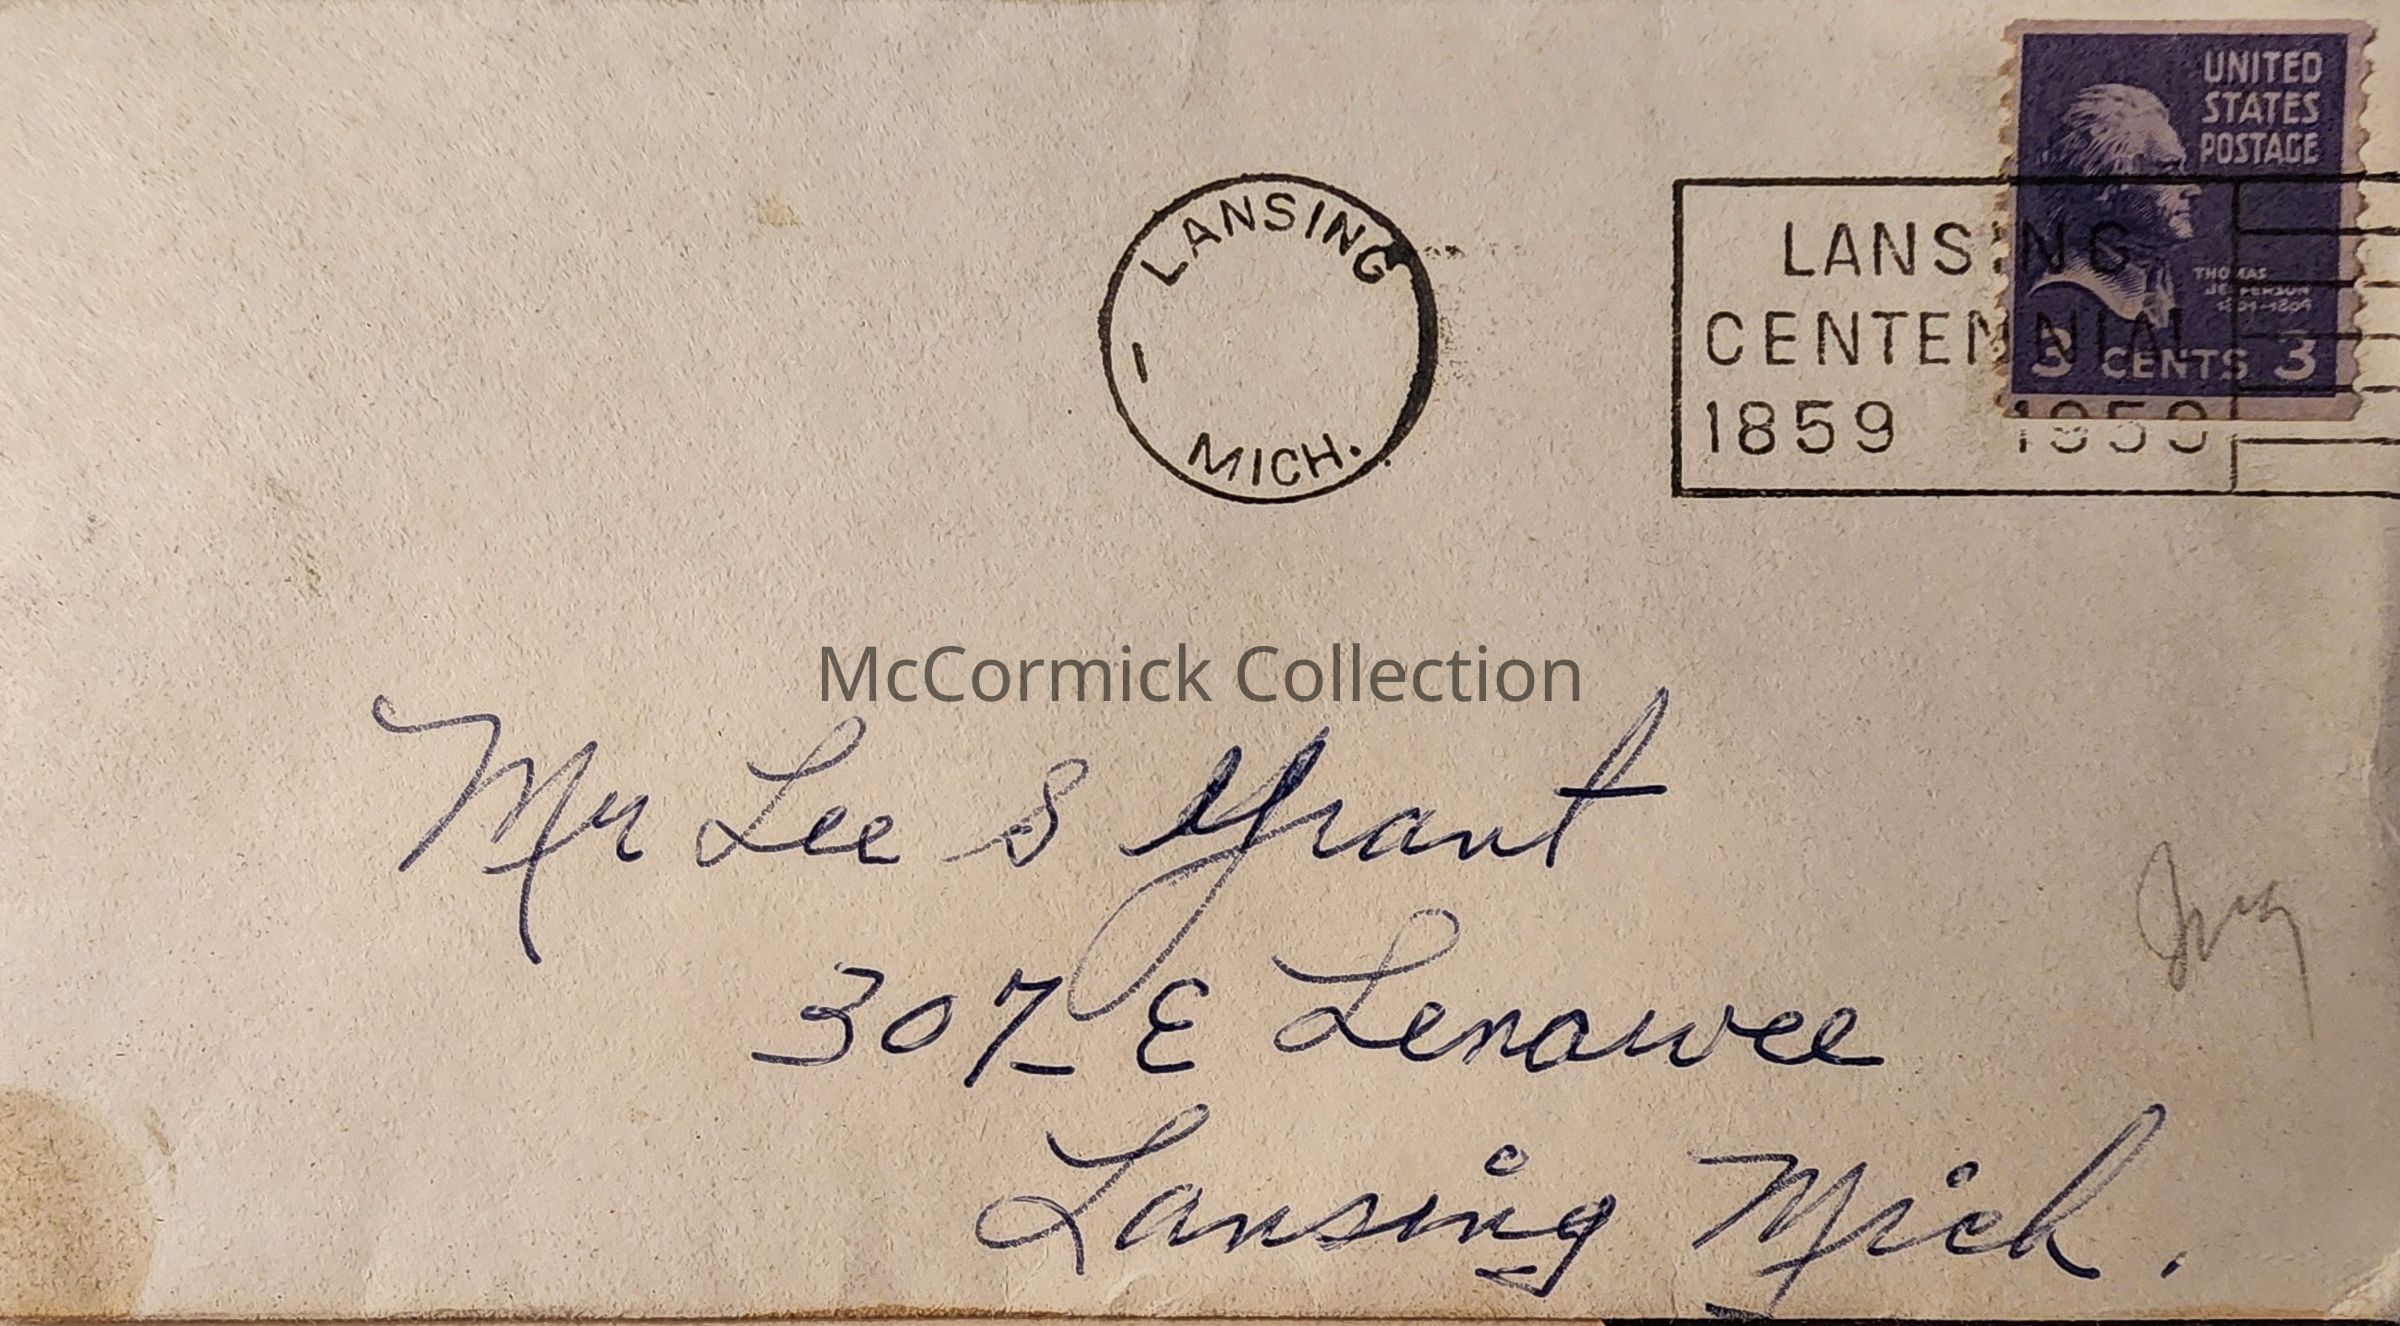 UNITED
STATES
POSTAGE
LANSING
MICH.
1
LANSING
CENTENNIAL
1859 1959
THOMAS
JEFFERSON
1801-1809
3 CENTS 3
McCormick Collection
Mr Lee S Grant
307 E Lenawee
Lansing Mich.